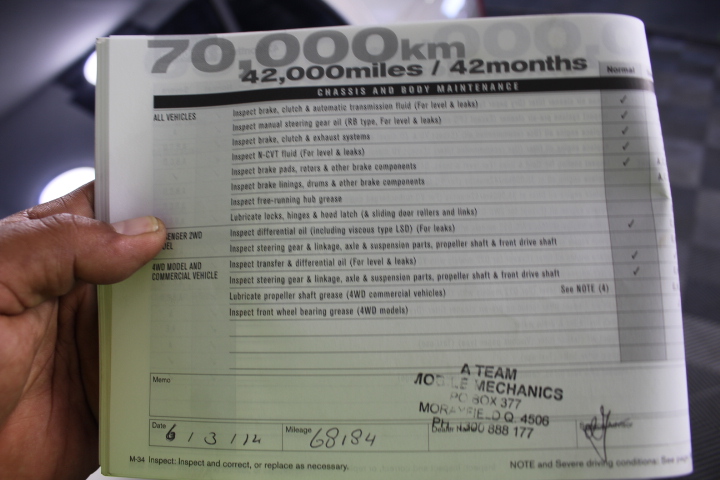 70,000km
42,000miles / 42months
Normal
CHASSIS AND BODY MAINTENANCE
ALL VEHICLES
Inspect brake, clutch & automatic transmission fluid (For level & leaks) ✓
Inspect manual steering gear oil (RB type, For level & leaks) ✓
Inspect brake, clutch & exhaust systems ✓
Inspect N-CVT fluid (For level & leaks) ✓
Inspect brake pads, rotors & other brake components ✓
Inspect brake linings, drums & other brake components
Inspect free-running hub grease
Lubricate locks, hinges & hood latch (& sliding door rollers and links)
ENGER 2WD
Inspect differential oil (including viscous type LSD) (For leaks) ✓
Inspect steering gear & linkage, axle & suspension parts, propeller shaft & front drive shaft
4WD MODEL AND
COMMERCIAL VEHICLE
Inspect transfer & differential oil (For level & leaks) ✓
Inspect steering gear & linkage, axle & suspension parts, propeller shaft & front drive shaft ✓
Lubricate propeller shaft grease (4WD commercial vehicles) See NOTE (4)
Inspect front wheel bearing grease (4WD models)
Memo
A TEAM
MECHANICS
PO BOX 377
Q. 4506
PH. 1300 888 177
Date 6 / 3 / 12
Mileage 68184
M-34 Inspect: Inspect and correct, or replace as necessary.
NOTE and Severe driving conditions: See